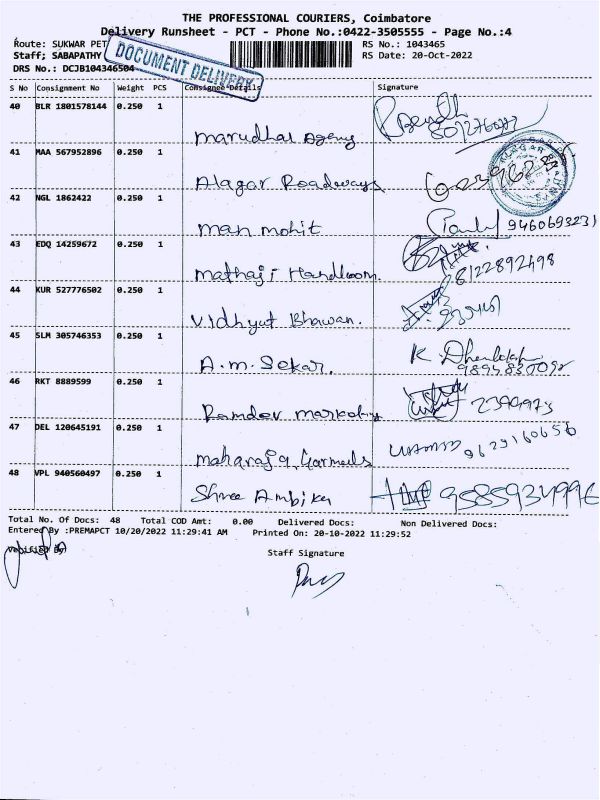 THE PROFESSIONAL COURIERS, Coimbatore
Delivery Runsheet - PCT - Phone No.:0422-3505555 - Page No.:4
Route: SUKWAR PET
RS No.: 1043465
Staff; SABAPATHY
RS Date: 20-Oct-2022
DRS No.: DCJB104346504
DOCUMENT DELIVERY
S No Consignment No Weight PCS Consignee Details Signature
40 BLR 1801578144 0.250 1
Marudhar Agency
41 MAA 567952896 0.250 1
Alagar Roadways
42 NGL 1862422 0.250 1
Man mohit 9460693231
43 EDQ 14259672 0.250 1
Mathaji Handloom. 8122892498
44 KUR 527776502 0.250 1
Vidhyut Bhawan.
45 SLM 305746353 0.250 1
A.M. Sekar. K
46 RKT 8889599 0.250 1
Ramdev Marketing
47 DEL 120645191 0.250 1
Maharaja Garments 9629160656
48 VPL 940560497 0.250 1
Shree Ambika 9585934996
Total No. Of Docs: 48 Total COD Amt: 0.00 Delivered Docs: Non Delivered Docs:
Entered By :PREMAPCT 10/20/2022 11:29:41 AM Printed On: 20-10-2022 11:29:52
Verified By
Staff Signature